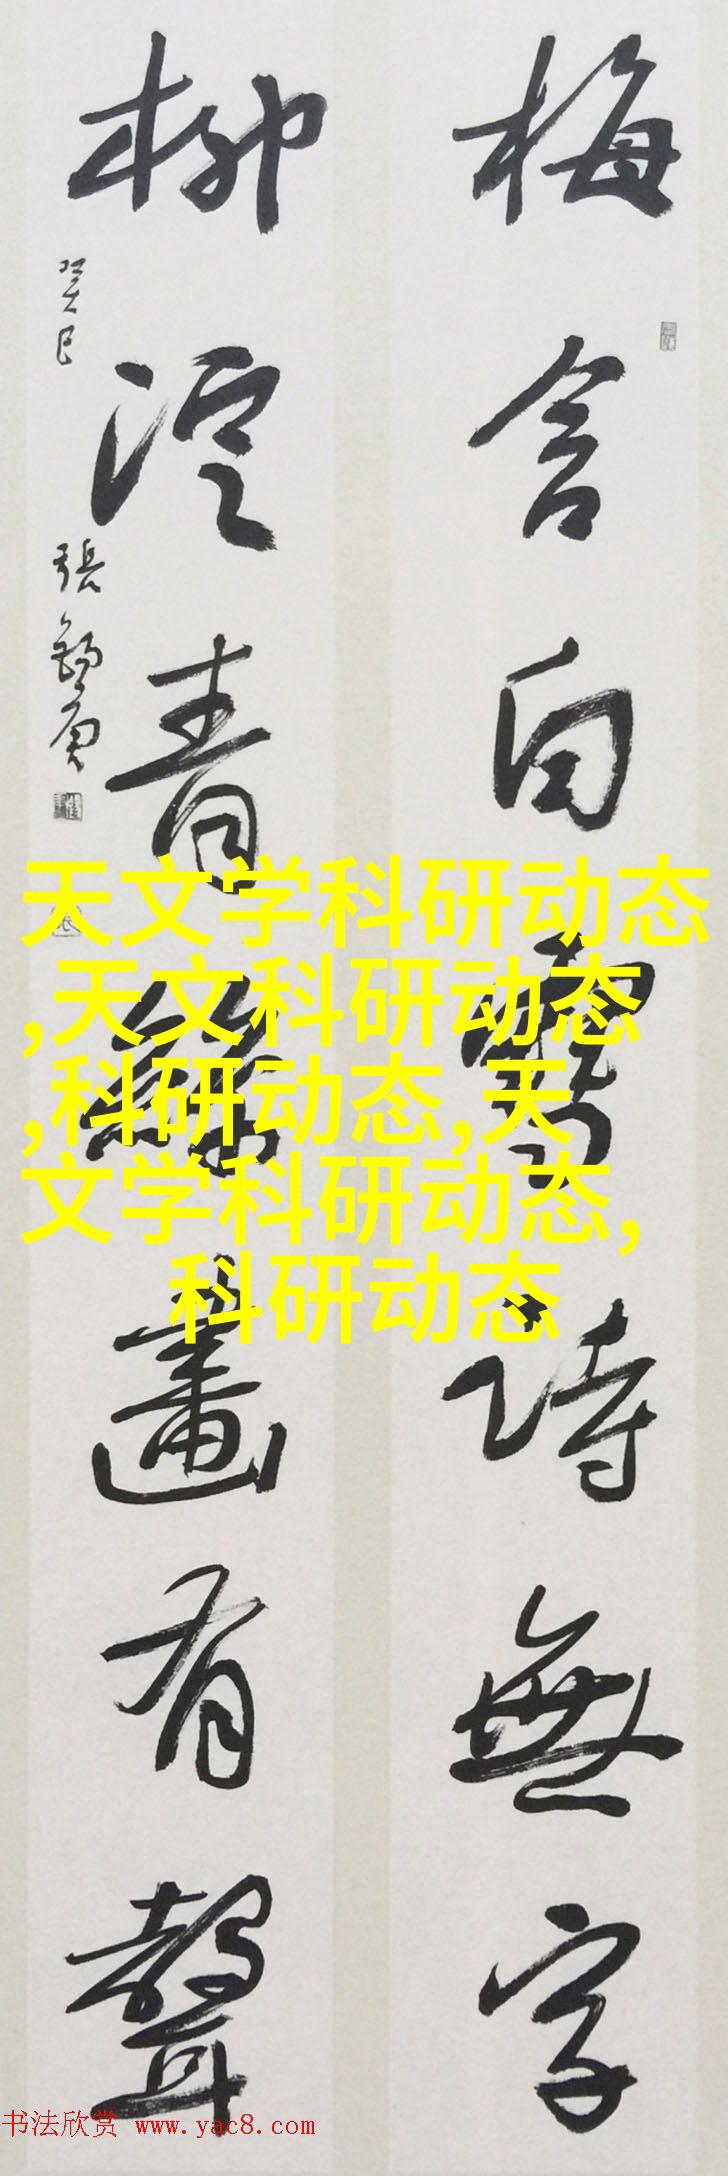 梅含白雪詩無字
柳浥青絲畫有聲
癸巳
張
天文学科研动态
,天文科研动态
,科研动态,天
文学科研动态,
科研动态
书法欣赏 www.yac8.com